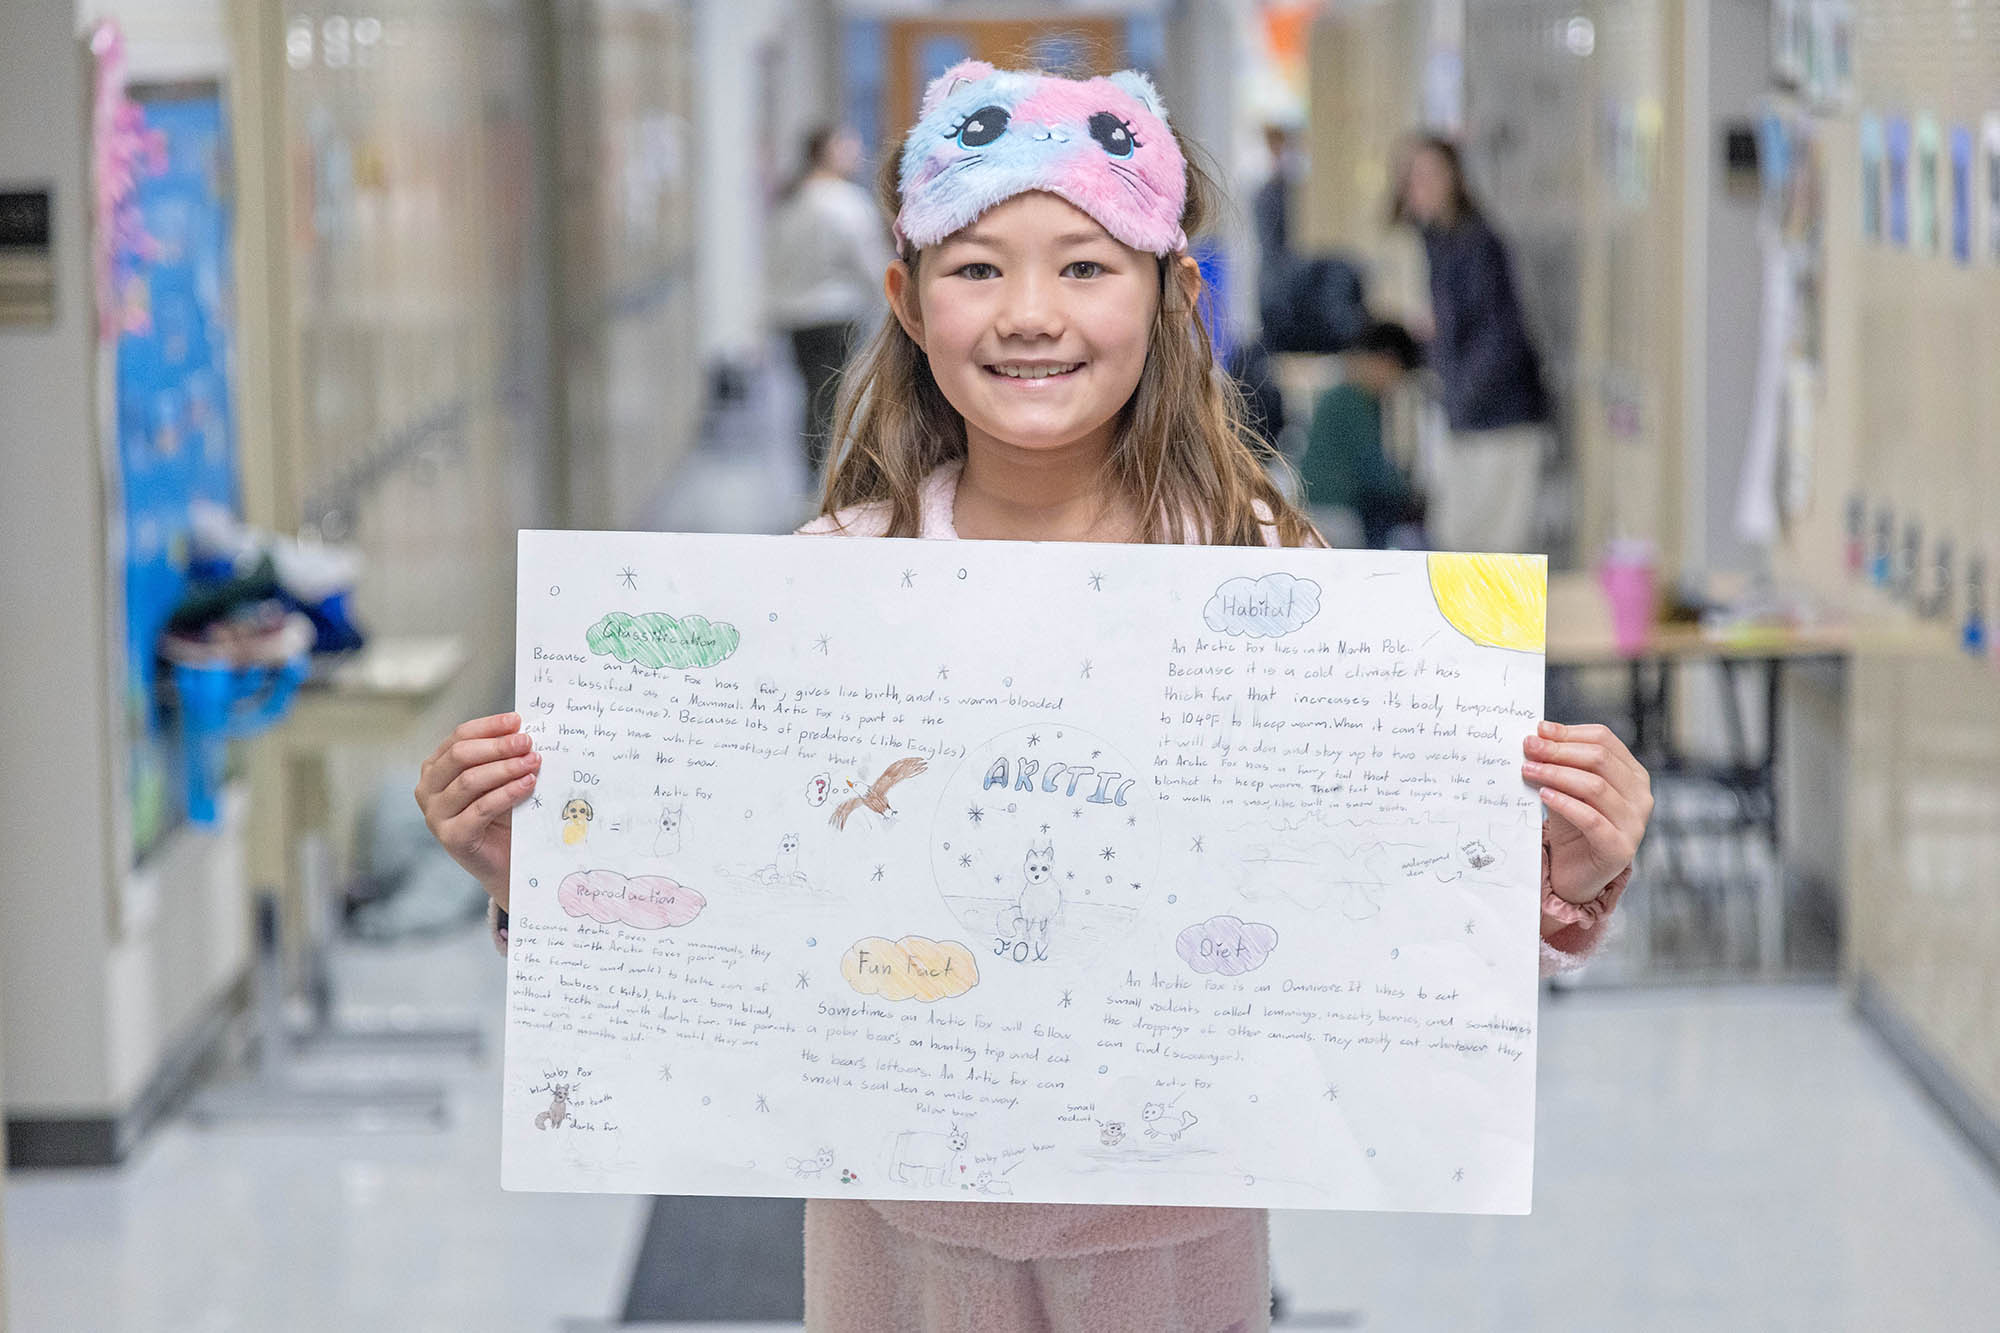 Classification
Because an Arctic Fox has fur, gives live birth, and is warm-blooded
it's classified as a Mammal. An Artic Fox is part of the
dog family (canine). Because lots of predators (like Eagles)
eat them, they have white camoflaged fur that
blends in with the snow.
DOG
=
Arctic Fox
?
ARCTIC
FOX
Habitat
An Arctic Fox lives in th North Pole.
Because it is a cold climate it has
thick fur that increases it's body temperature
to 104°F to keep warm. When it can't find food,
it will dig a den and stay up to two weeks there.
An Arctic Fox has a furry tail that works like a
blanket to keep warm. Their feet have layers of thick fur
to walk in snow, like built in snow boots.
underground
den
baby
fox
Reproduction
Because Arctic Foxes are mammals, they
give live birth. Arctic Foxes pair up
(the female and male) to take care of
their babies (kits). Kits are born blind,
without teeth and with dark fur. The parents
take care of the kits until they are
around 10 months old.
baby Fox
blind
no teeth
dark fur
Fun Fact
Sometimes an Arctic Fox will follow
a polar bear's on hunting trip and eat
the bear's leftovers. An Artic Fox can
smell a seal den a mile away.
Polar bear
baby polar bear
Diet
An Arctic Fox is an Omnivore. It likes to eat
small rodents called lemmings, insects, berries, and sometimes
the droppings of other animals. They mostly eat whatever they
can find (scavenger).
Arctic Fox
small
rodent